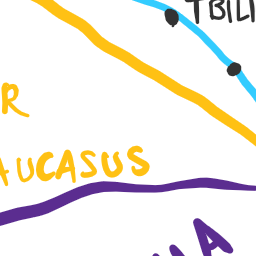 TBILI
R
AUCASUS
MA